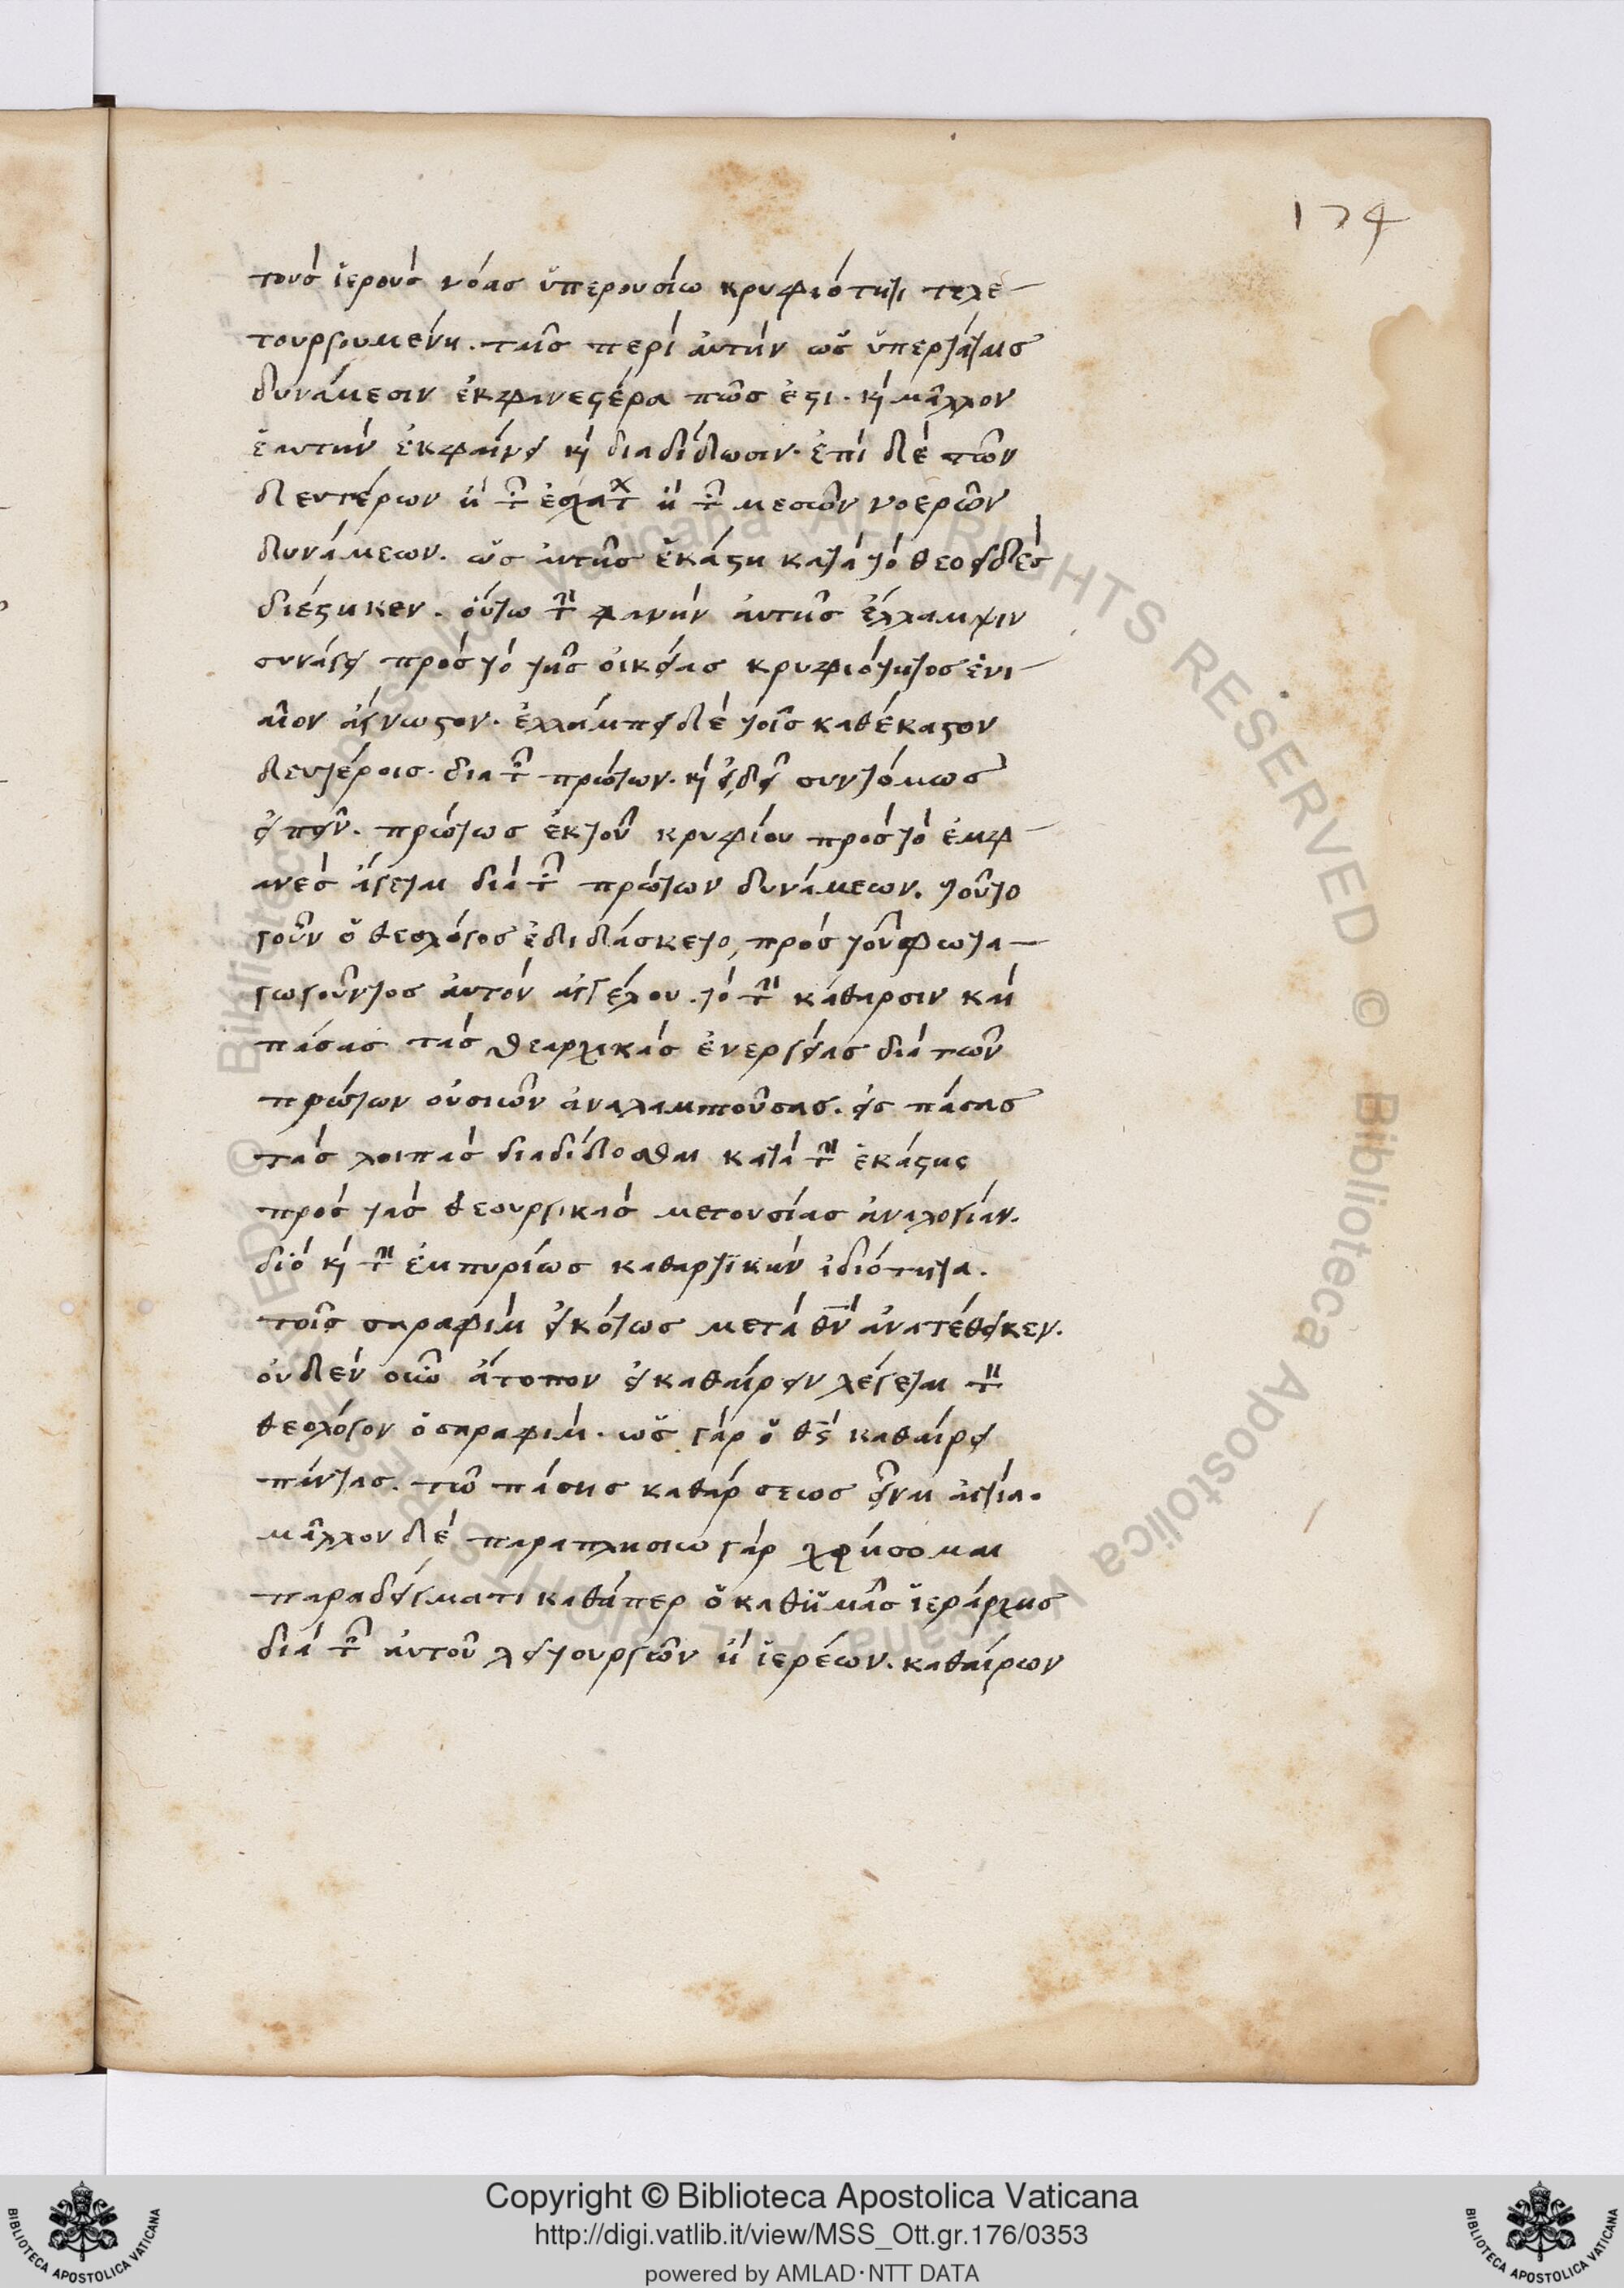 174
τοὺς ἱεροὺς νόας ὑπερουσίω κρυφιότητι τελε
τουργουμένη. ταῖς περὶ αὐτὴν ὡς ὑπερτάταις
δυνάμεσιν ἐκφανεστέρα πῶς ἐστι. καὶ μᾶλλον
ἑαυτὴν ἐκφαίνει καὶ διαδίδωσιν. ἐπὶ δὲ τῶν
δευτέρων ἢ τῶν ἐσχάτων ἢ τῶν μεσῶν νοερῶν
δυνάμεων. ὡς αὐτῆς ἑκάστη κατὰ τὸ θεοειδὲς
διέστηκεν. οὕτω τὴν φανὴν αὐτῆς ἔλλαμψιν
συνάγει πρὸς τὸ τῆς οἰκείας κρυφιότητος ἑνι
αῖον ἄγνωστον. ἐλλάμπει δὲ τοῖς καθέκαστον
δευτέροις. δια τῶν πρώτων. καὶ εἰ δεῖ συντόμως
εἰπεῖν. πρώτως ἐκ τοῦ κρυφίου πρὸς τὸ ἐμφ
ανὲς ἄγεται διὰ τῶν πρώτων δυνάμεων. τοῦτο
γοῦν ὁ θεολόγος ἐδιδάσκετο, πρὸς τοῦ φωτα
γωγοῦντος αὐτὸν ἀγγέλου. τὸ τὴν κάθαρσιν καὶ
πάσας τὰς θεαρχικὰς ἐνεργείας διὰ τῶν
πρώτων οὐσιῶν ἀναλαμπούσας. εἰς πάσας
τὰς λοιπὰς διαδίδοσθαι κατὰ τὴν ἑκάστης
πρὸς τὰς θεουργικὰς μετουσίας ἀναλογίαν.
διὸ καὶ τὴν ἐμπυρίως καθαρτικὴν ἰδιότητα.
τοῖς σαραφὶμ εἰκότως μετὰ θν ἀνατέθεικεν.
οὐδὲν οὖν ἄτοπον εἰ καθαίρειν λέγεται τὸν
θεολόγον ὁ σαραφίμ. ὡς γὰρ ὁ θς καθαίρει
πάντας. τῶ πάσης καθάρσεως εἶναι αἰτία.
μᾶλλον δὲ παραπλησιω γὰρ χρήσομαι
παραδείγματι καθάπερ ὁ καθ ἡμᾶς ἱεράρχης
διὰ τῶν αὐτοῦ λειτουργῶν ἢ ἱερέων. καθαίρων
Copyright © Biblioteca Apostolica Vaticana
http://digi.vatlib.it/view/MSS_Ott.gr.176/0353
powered by AMLAD·NTT DATA